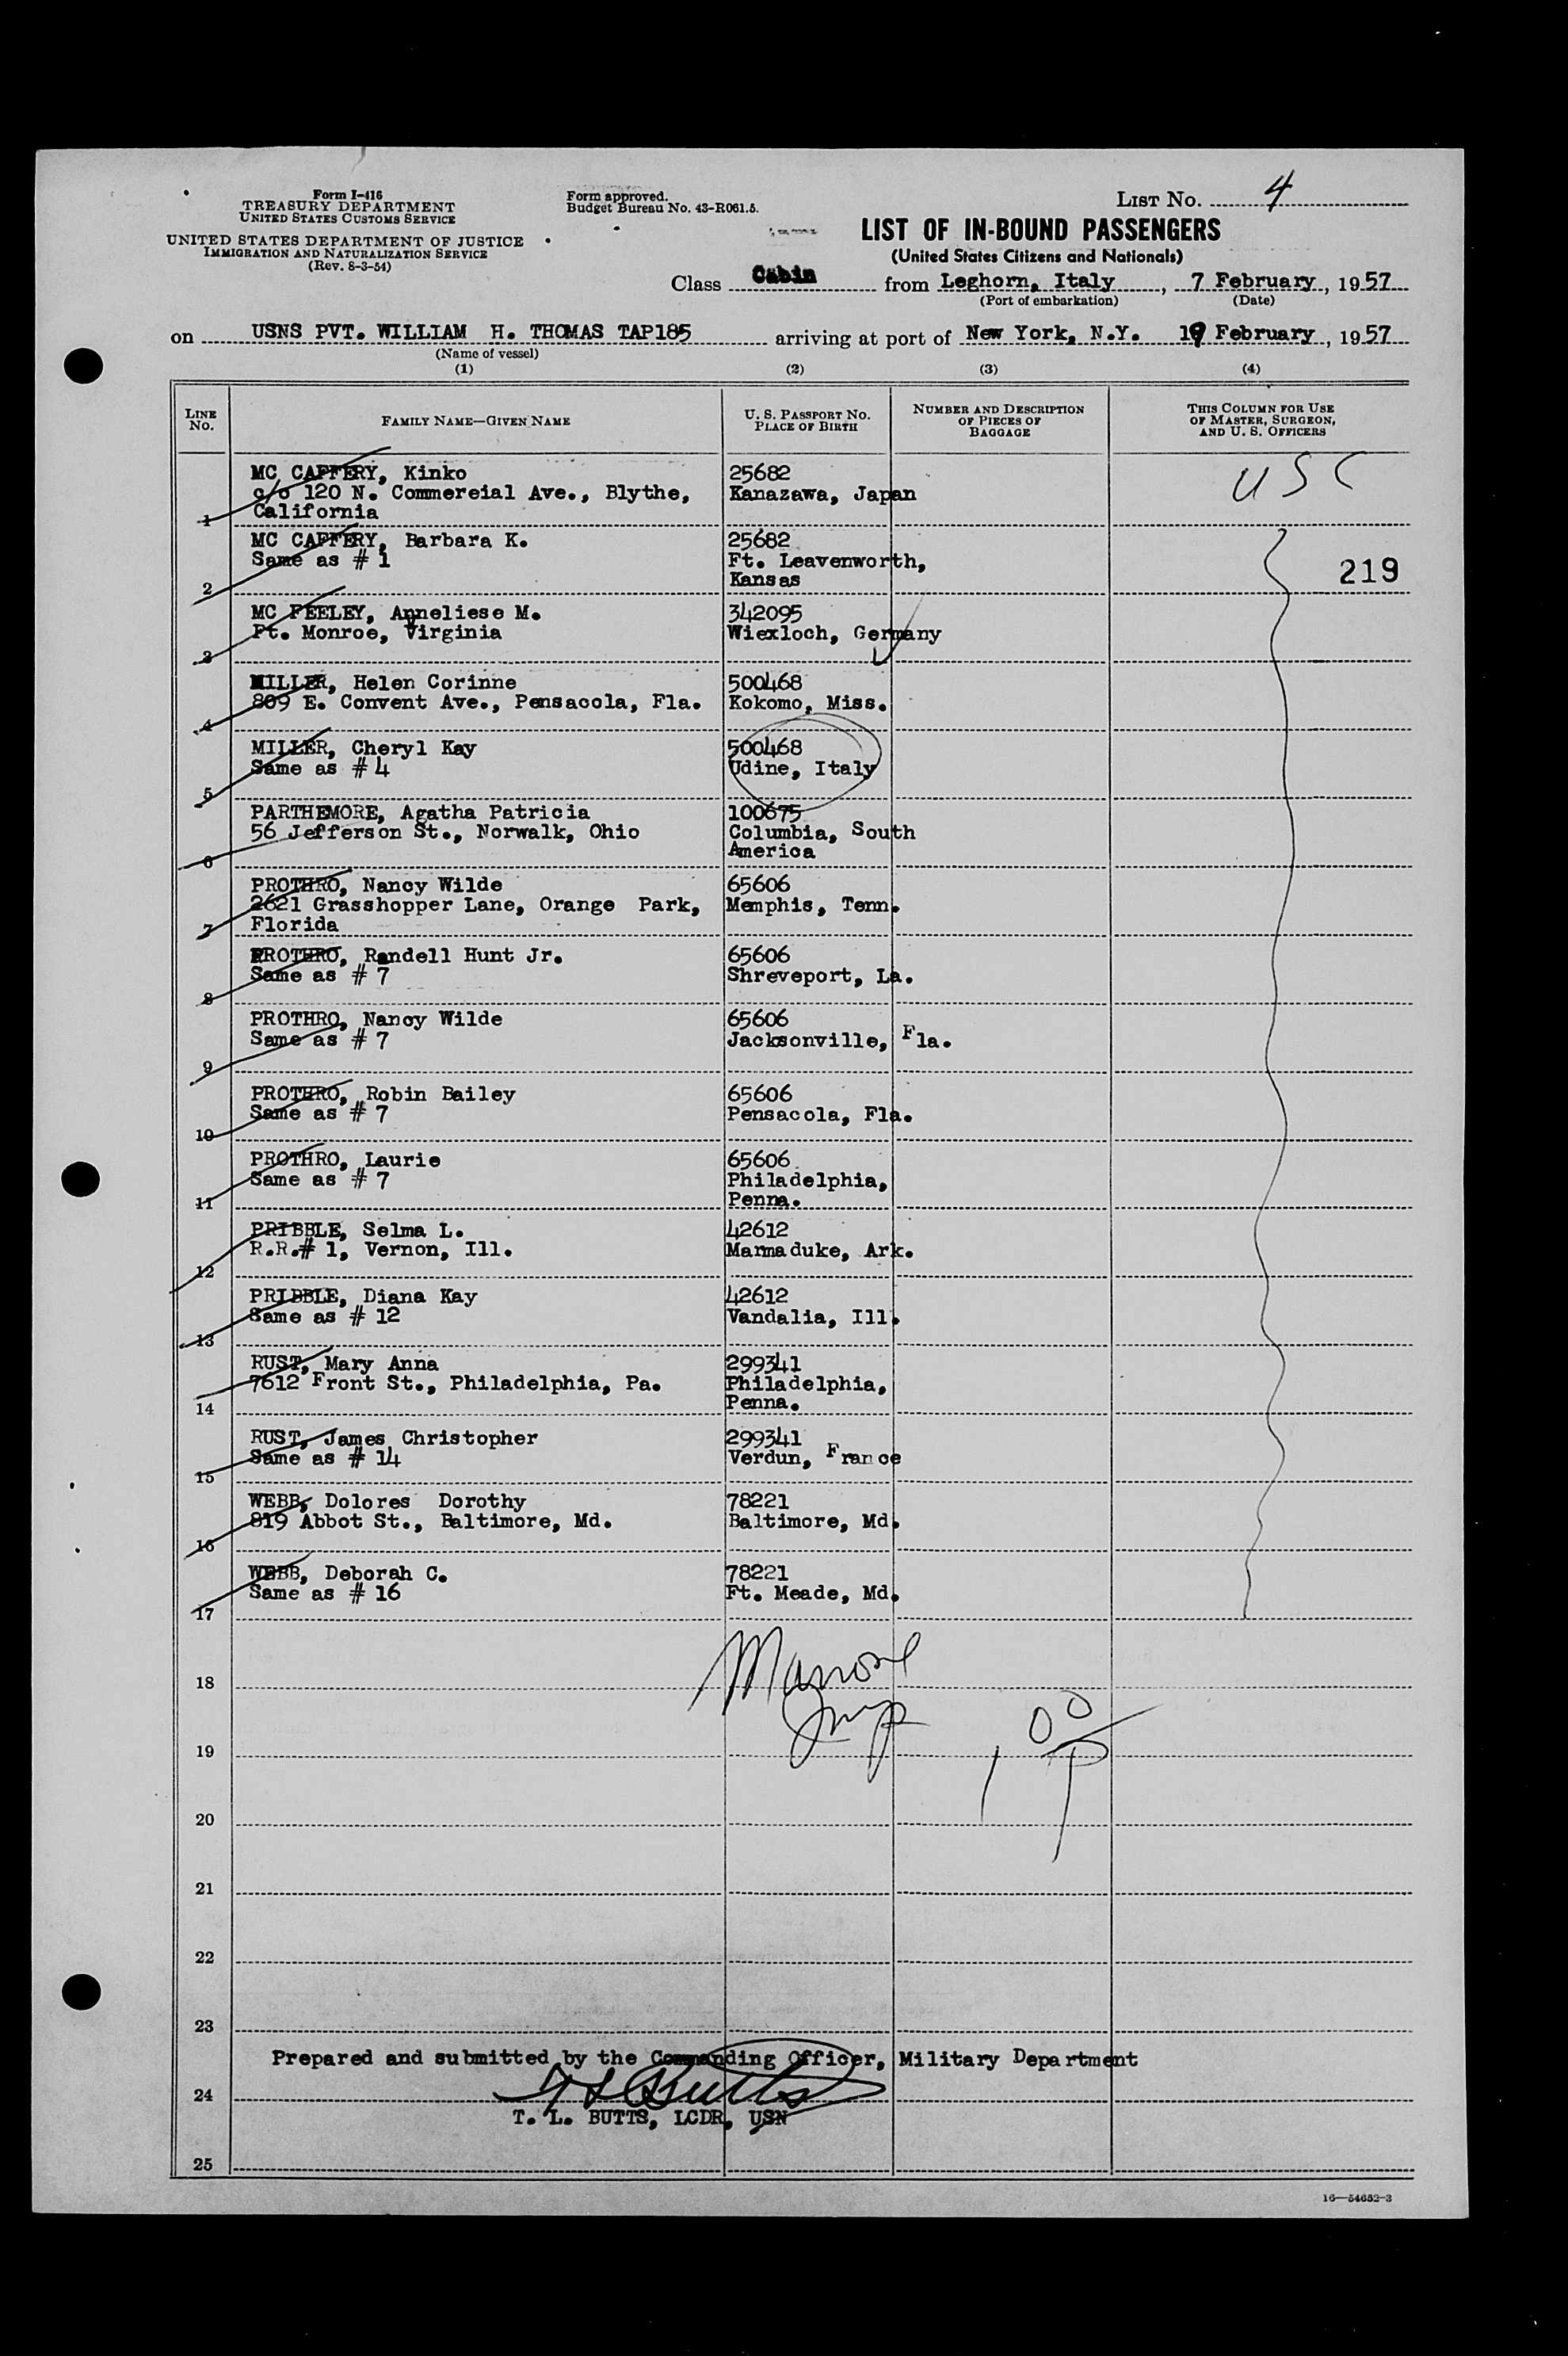 Form I-416
TREASURY DEPARTMENT
UNITED STATES CUSTOMS SERVICE
UNITED STATES DEPARTMENT OF JUSTICE
IMMIGRATION AND NATURALIZATION SERVICE
(Rev. 8-3-54)
Form approved.
Budget Bureau No. 43-R061.5.
LIST No. 4
LIST OF IN-BOUND PASSENGERS
(United States Citizens and Nationals)
Class Cabin from Leghorn, Italy, 7 February, 1957
(Port of embarkation) (Date)
on USNS PVT. WILLIAM H. THOMAS TAP185 arriving at port of New York, N.Y. 19 February, 1957
(Name of vessel)
(1) (2) (3) (4)
LINE No. FAMILY NAME—GIVEN NAME U. S. PASSPORT No. PLACE OF BIRTH NUMBER AND DESCRIPTION OF PIECES OF BAGGAGE THIS COLUMN FOR USE OF MASTER, SURGEON, AND U. S. OFFICERS
MC CAFFERY, Kinko 25682 USC
c/o 120 N. Commereial Ave., Blythe, Kanazawa, Japan
1 California
MC CAFFERY, Barbara K. 25682
Same as # 1 Ft. Leavenworth, 219
2 Kansas
MC FEELEY, Anneliese M. 342095
Ft. Monroe, Virginia Wiexloch, Germany
3
MILLER, Helen Corinne 500468
809 E. Convent Ave., Pensacola, Fla. Kokomo, Miss.
4
MILLER, Cheryl Kay 500468
Same as # 4 Udine, Italy
5
PARTHEMORE, Agatha Patricia 100675
56 Jefferson St., Norwalk, Ohio Columbia, South
6 America
PROTHRO, Nancy Wilde 65606
2621 Grasshopper Lane, Orange Park, Memphis, Tenn.
7 Florida
PROTHRO, Randell Hunt Jr. 65606
Same as # 7 Shreveport, La.
8
PROTHRO, Nancy Wilde 65606
Same as # 7 Jacksonville, Fla.
9
PROTHRO, Robin Bailey 65606
Same as # 7 Pensacola, Fla.
10
PROTHRO, Laurie 65606
Same as # 7 Philadelphia,
11 Penna.
PRIBBLE, Selma L. 42612
R.R.# 1, Vernon, Ill. Marmaduke, Ark.
12
PRIBBLE, Diana Kay 42612
Same as # 12 Vandalia, Ill.
13
RUST, Mary Anna 299341
7612 Front St., Philadelphia, Pa. Philadelphia,
14 Penna.
RUST, James Christopher 299341
Same as # 14 Verdun, France
15
WEBB, Dolores Dorothy 78221
819 Abbot St., Baltimore, Md. Baltimore, Md.
16
WEBB, Deborah C. 78221
Same as # 16 Ft. Meade, Md.
17
18
19
20
21
22
23
Prepared and submitted by the Commanding Officer, Military Department
24
T. L. BUTTS, LCDR, USN
25
16—54652-3